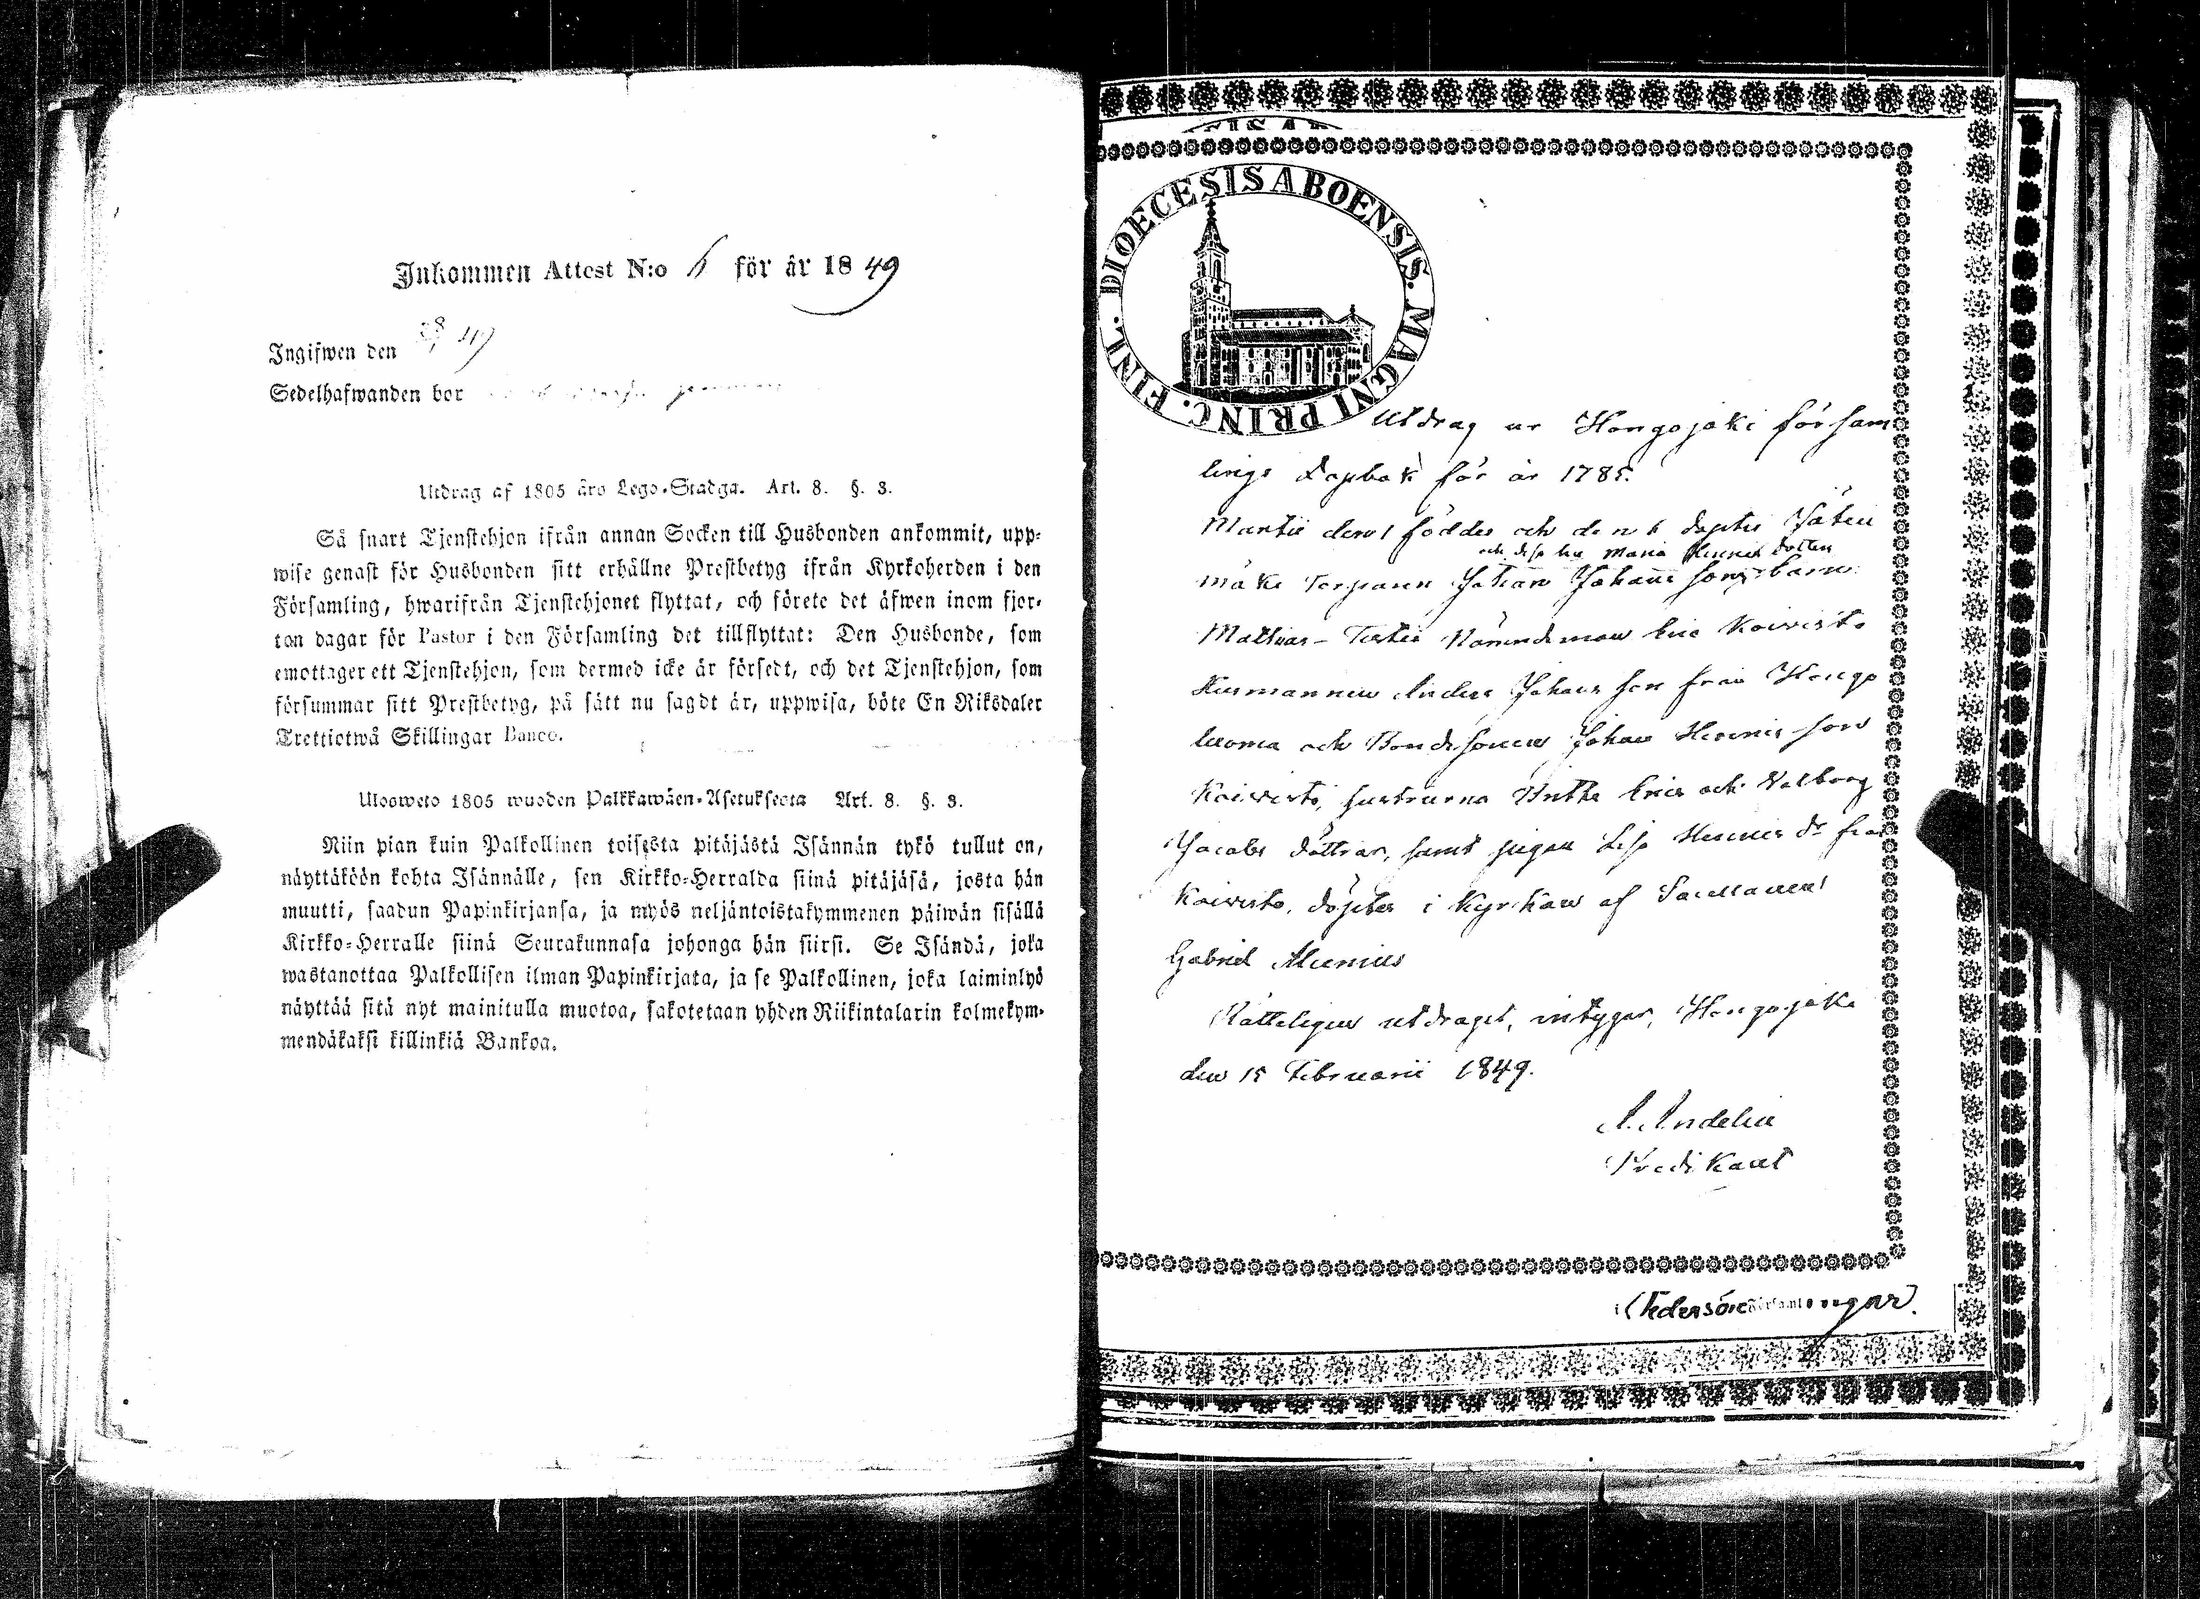 Inkommen Attest N:o 6 för år 1849
Ingifwen den
Sedelhafwanden bor
Utdrag af 1805 års Lego-Stadga. Art. 8. §. 3.
Så snart Tjenstehjon ifrån annan Socken till Husbonden ankommit, upp-
wise genast för Husbonden sitt erhållne Prestbetyg ifrån Kyrkoherden i den
Församling, hwarifrån Tjenstehjonet flyttat, och förete det äfwen inom fjor-
ton dagar för Pastor i den Församling det tillflyttat: Den Husbonde, som
emottager ett Tjenstehjon, som dermed icke är försedt, och det Tjenstehjon, som
försummar sitt Prestbetyg, på sätt nu sagdt är, uppwisa, böte En Riksdaler
Trettiotwå Skillingar Banco.
Ulosweto 1805 wuoden Palkkawäen-Asetuksesta Art. 8. §. 3.
Niin pian kuin Palkollinen toisesta pitäjästä Isännän tykö tullut on,
näyttäköön kohta Isännälle, sen Kirkko-Herralda siinä pitäjäsä, josta hän
muutti, saadun Papinkirjansa, ja myös neljäntoistakymmenen päiwän sisällä
Kirkko-Herralle siinä Seurakunnasa johonga hän siirsi. Se Isändä, joka
wastanottaa Palkollisen ilman Papinkirjata, ja se Palkollinen, joka laiminlyö
näyttää sitä nyt mainitulla muotoa, sakotetaan yhden Riikintalarin kolmekym-
mendäkaksi killinkiä Bankoa.
DIOECESIS ABOENSIS. MAGNI PRINC. FINL.
Utdrag ur Hongojoki försam
lings Dopbok för år 1785.
Martii den 1 föddes och den 6 döptes
och dess hu Maria Henrics dotters
mäki Torparen Johan Johans sons barn
Mathias - Testes Nämndeman Eric Koivisto
Husmannen Anders Johans son från Hongo
luoma och Bondesonen Johan Henrics son
Koivisto, hustrurna Britha Erics och Valborg
Jacobs döttrar, samt pigan Lisa Henrics dr från
Koivisto, döptes i Kyrkan af Sacellanen
Gabriel
Rätteligen utdraget, intygar, Hongojoki
den 15 Februarii 1849.
A. Indelin
Predikant